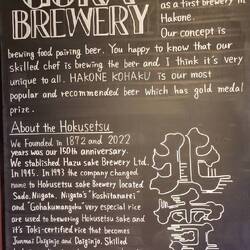 GORA
BREWERY
as a first brewery in
Hakone.
Our concept is
brewing food pairing beer. You happy to know that our
skilled chef is brewing the beer and I think it's very
unique to all. HAKONE KOHAKU is our most
popular and recommended beer which has gold medal
prize.
About the Hokusetsu
We Founded in 1872 and 2022
years was our 150th anniversary.
We stblished Hazu sake Brewery Ltd.
In 1945. In 1993 the company changed
name to Hokusetsu sake Brewery located
Sado, Niigata, Niigata's "Koshitanurei"
and "Gohakumangoku" very especial rice
are used to brewering Hokusetsu sake and
it's Toki-certified rice that becomes
Junmai Daiginjo, Daiginjo. Skilled